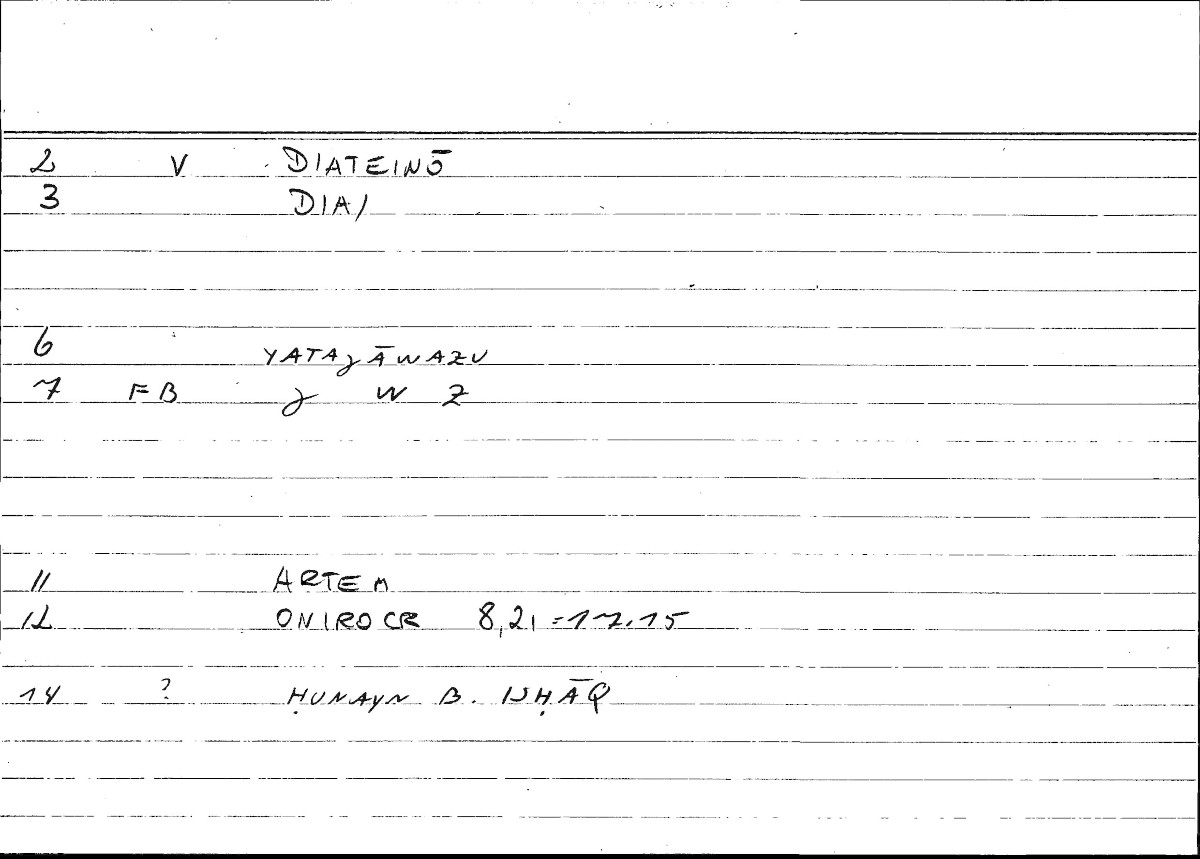 2 V DIATEINŌ
3 DIA/
6 YATAJĀWAZU
7 FB J W Z
11 ARTEM
12 ONIROCR 8,21=17.15
14 ? ḤUNAYN B. ISḤĀQ